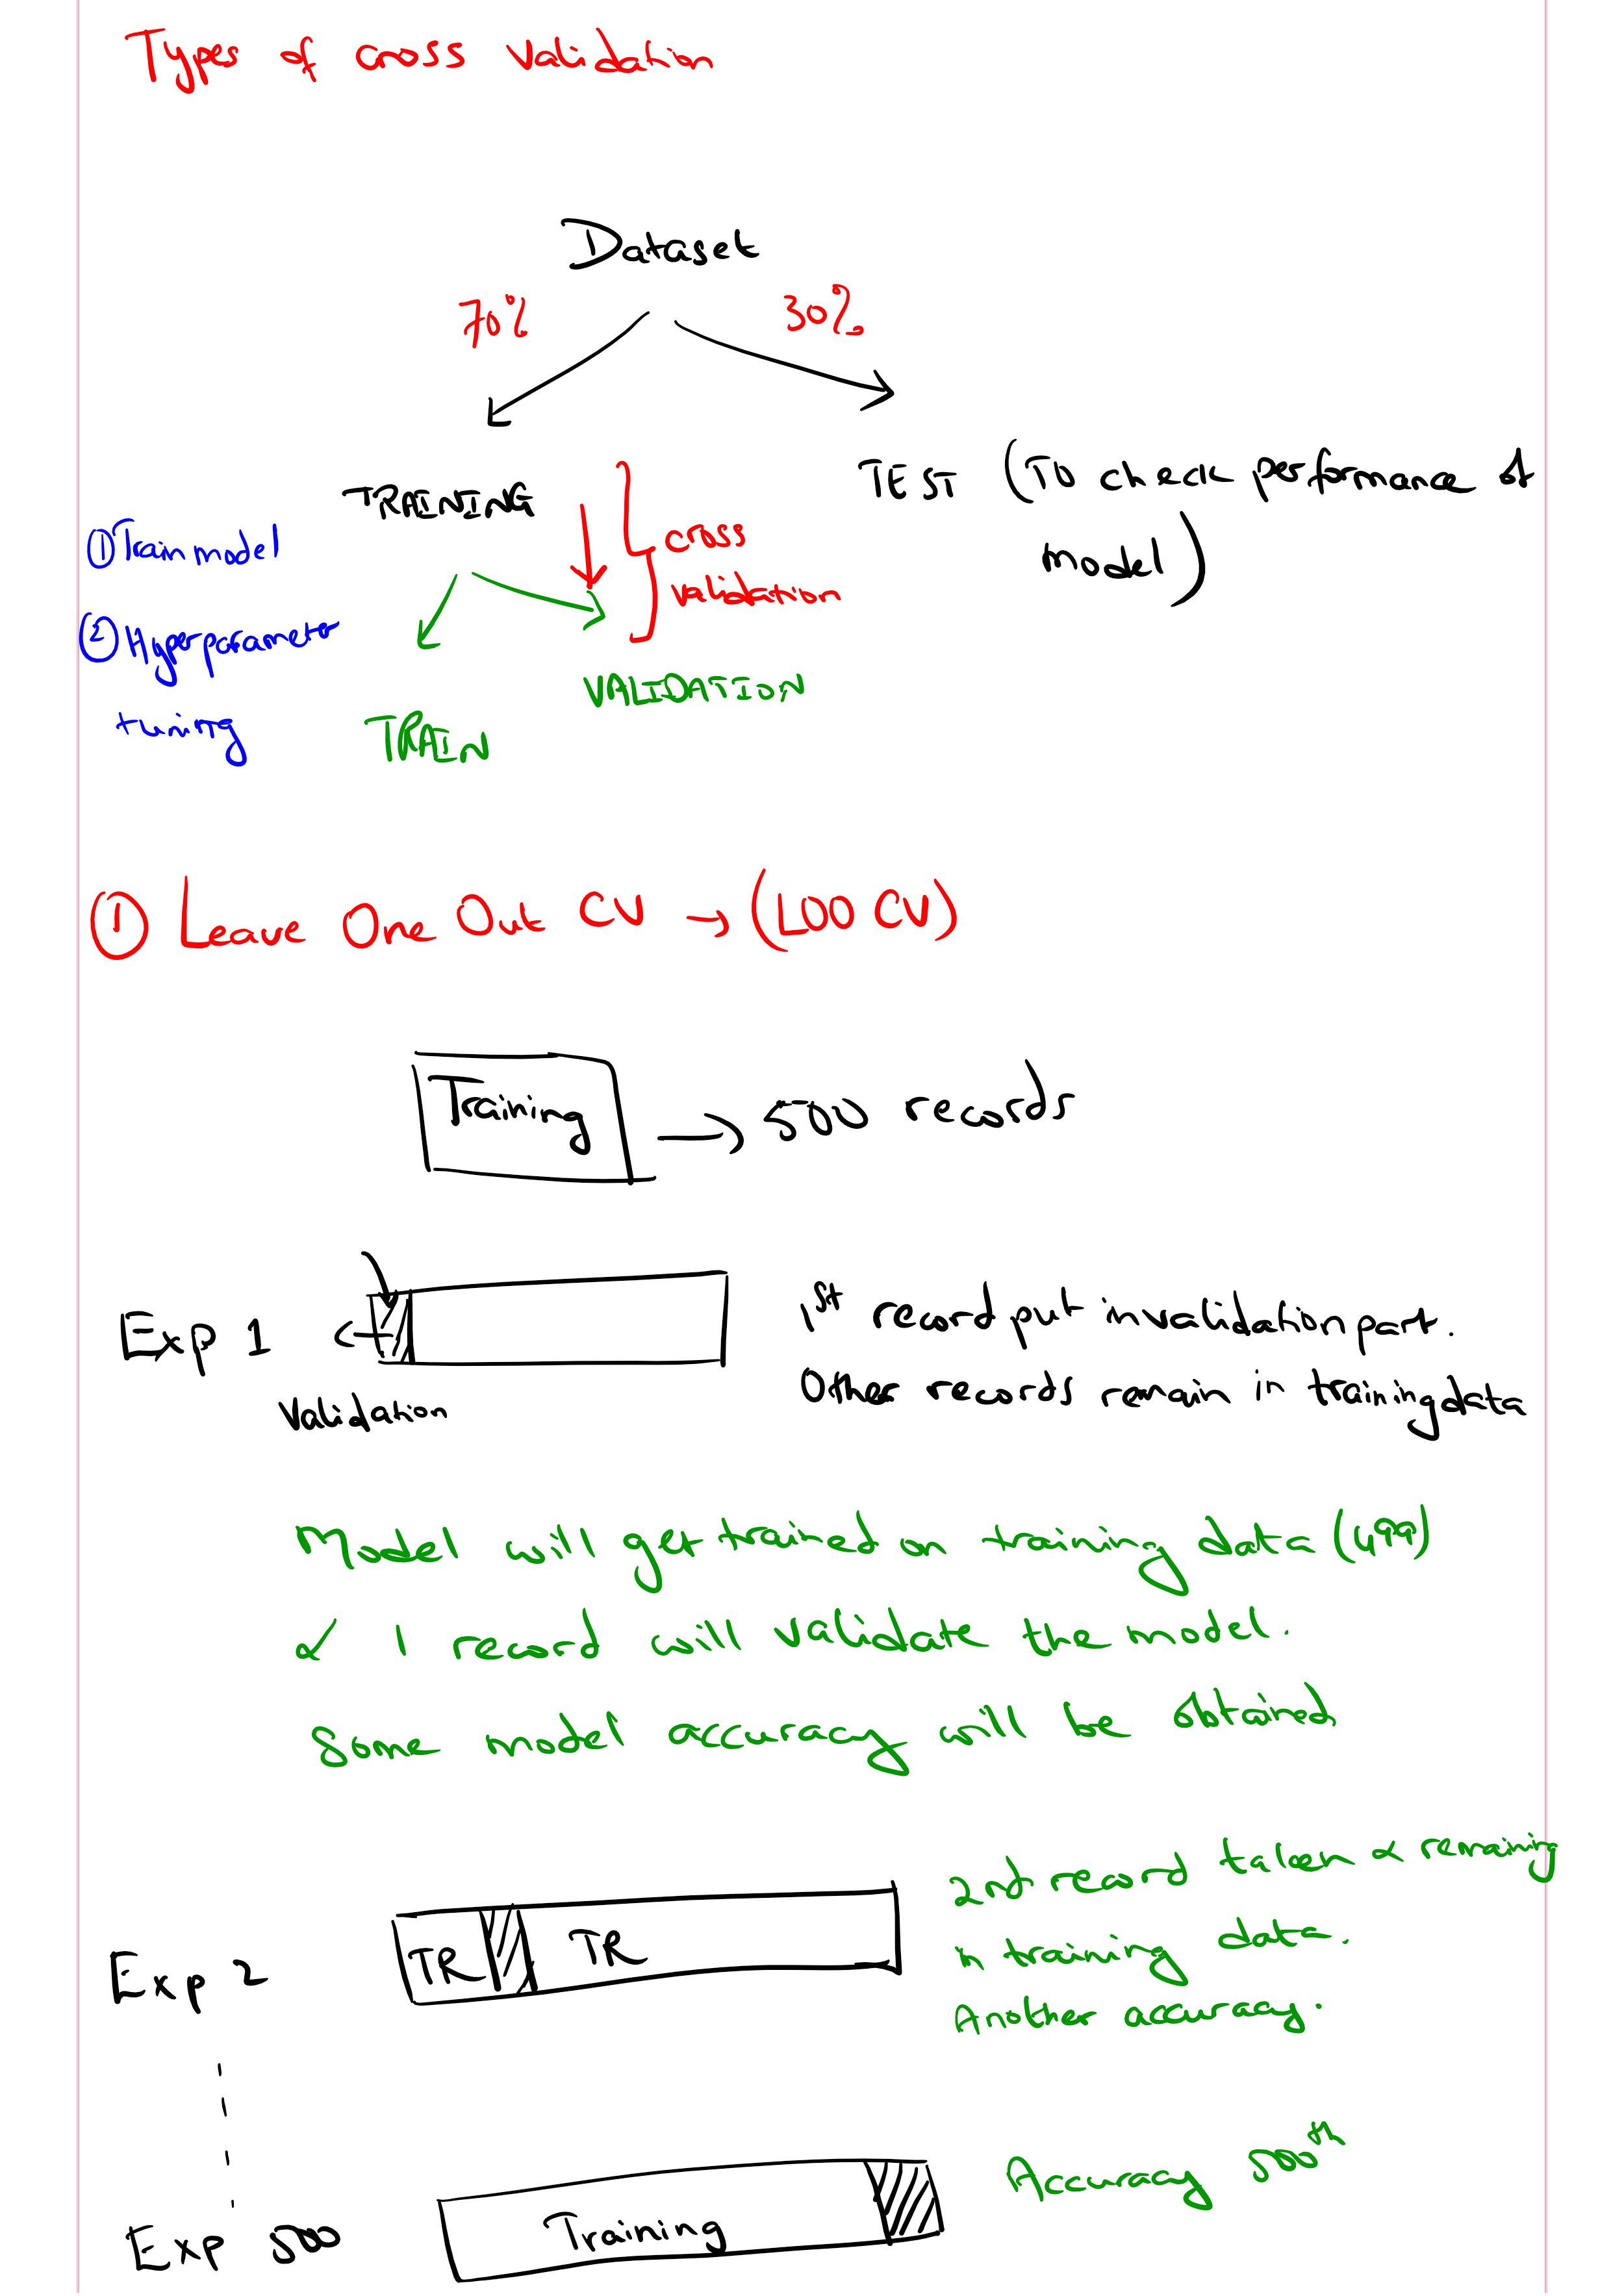 Types of cross validation
Dataset
70% 30%
TRAINING
TEST (To check performance of
model)
cross
validation
① Train model
② Hyperparameter
tuning
TRAIN
VALIDATION
① Leave One Out CV → (LOO CV)
Training → 500 records
Exp 1
Validation
1st record put in validation part.
Other records remain in training data
Model will get trained on training data (499)
& 1 record will validate the model.
Some model accuracy will be obtained
Exp 2
TR TR
2nd record taken & remaining
in training data.
Another accuracy.
Exp 500
Training
Accuracy 500th